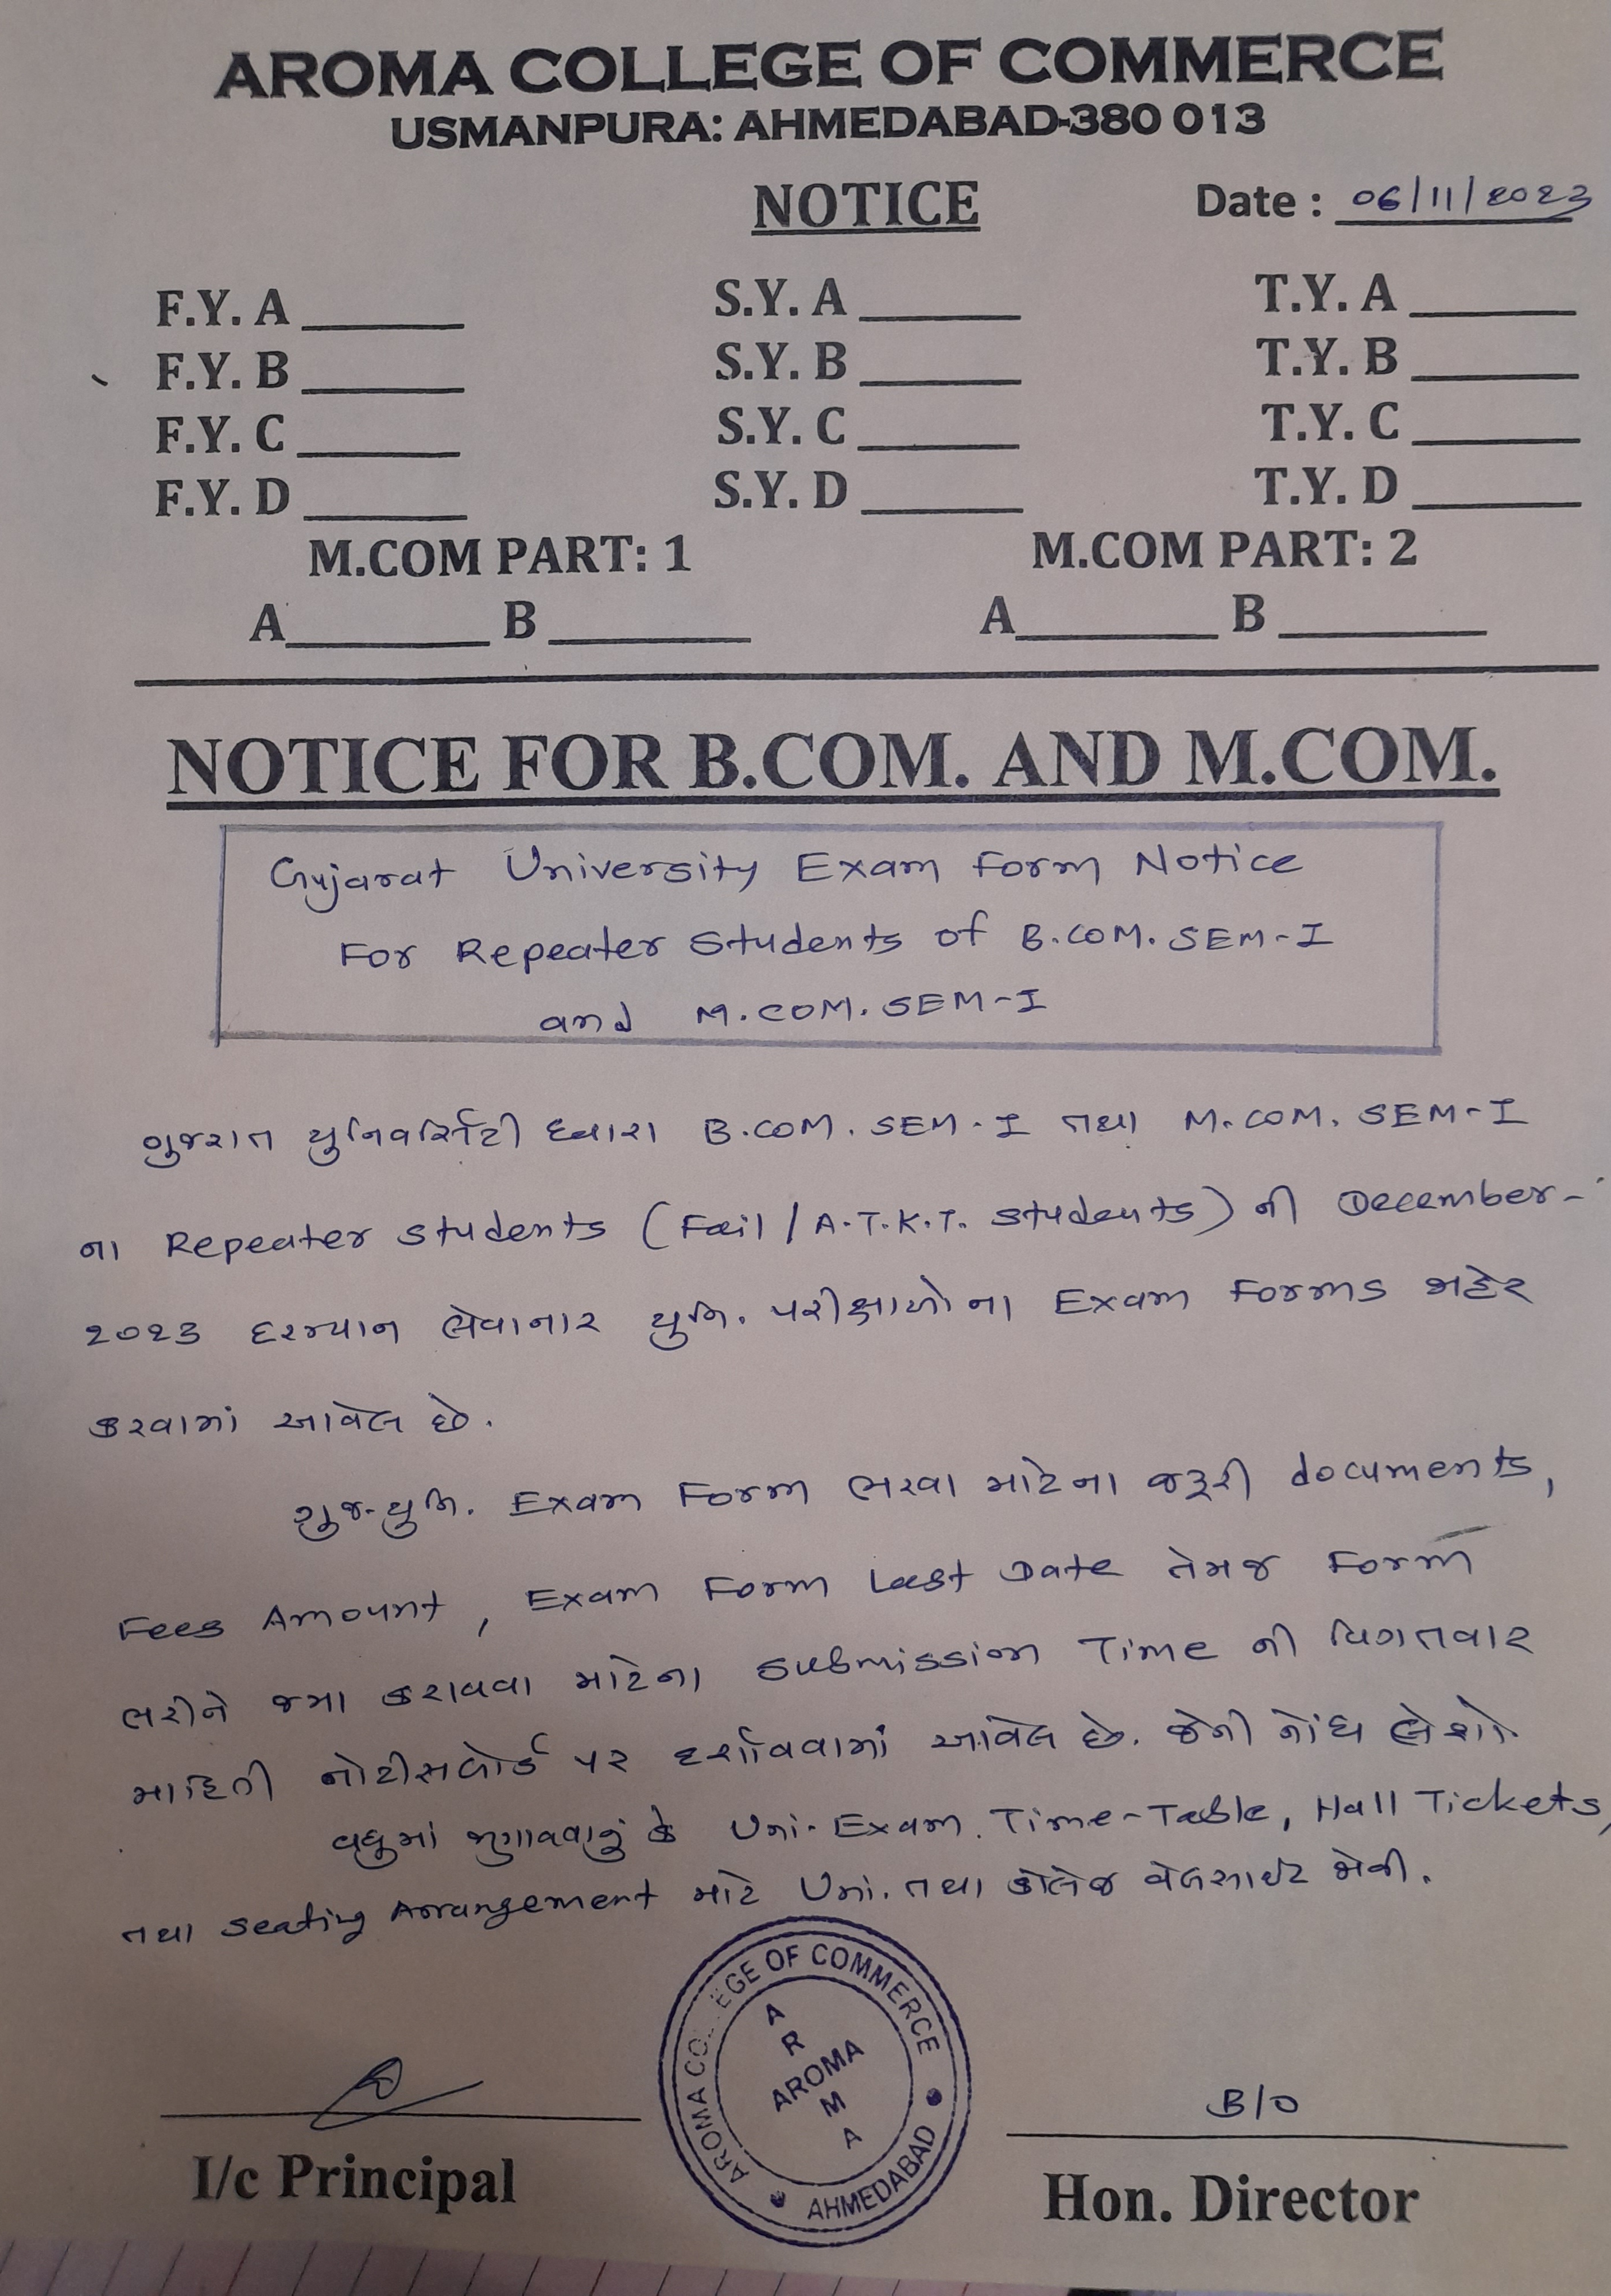 AROMA COLLEGE OF COMMERCE
USMANPURA: AHMEDABAD-380 013
NOTICE
Date : 06/11/2023
F.Y. A ______ S.Y. A ______ T.Y. A ______
F.Y. B ______ S.Y. B ______ T.Y. B ______
F.Y. C ______ S.Y. C ______ T.Y. C ______
F.Y. D ______ S.Y. D ______ T.Y. D ______
M.COM PART: 1 M.COM PART: 2
A________ B________ A________ B________
NOTICE FOR B.COM. AND M.COM.
Gujarat University Exam Form Notice
For Repeater Students of B.COM. SEM-I
and M.COM. SEM-I
ગુજરાત યુનિવર્સિટી ધ્વારા B.COM. SEM-I તથા M.COM. SEM-I
ના Repeater Students (Fail / A.T.K.T. Students) ની December-
૨૦૨૩ દરમ્યાન લેવાનાર યુનિ. પરીક્ષાઓના Exam Forms જાહેર
કરવામાં આવેલ છે.
ગુજ-યુનિ. Exam Form ભરવા માટેના જરૂરી documents,
Fees Amount, Exam Form Last Date તેમજ Form
ભરીને જમા કરાવવા માટેના Submission Time ની વિગતવાર
માહિતી નોટીસબોર્ડ પર દર્શાવવામાં આવેલ છે. જેની નોંધ લેશો.
વધુમાં જણાવવાનું કે Uni-Exam. Time-Table, Hall Tickets,
તથા Seating Arrangement માટે Uni. તથા કોલેજ વેબસાઈટ જોવી.
AROMA COLLEGE OF COMMERCE
AHMEDABAD
AROMA
AROMA
B/O
I/c Principal
Hon. Director